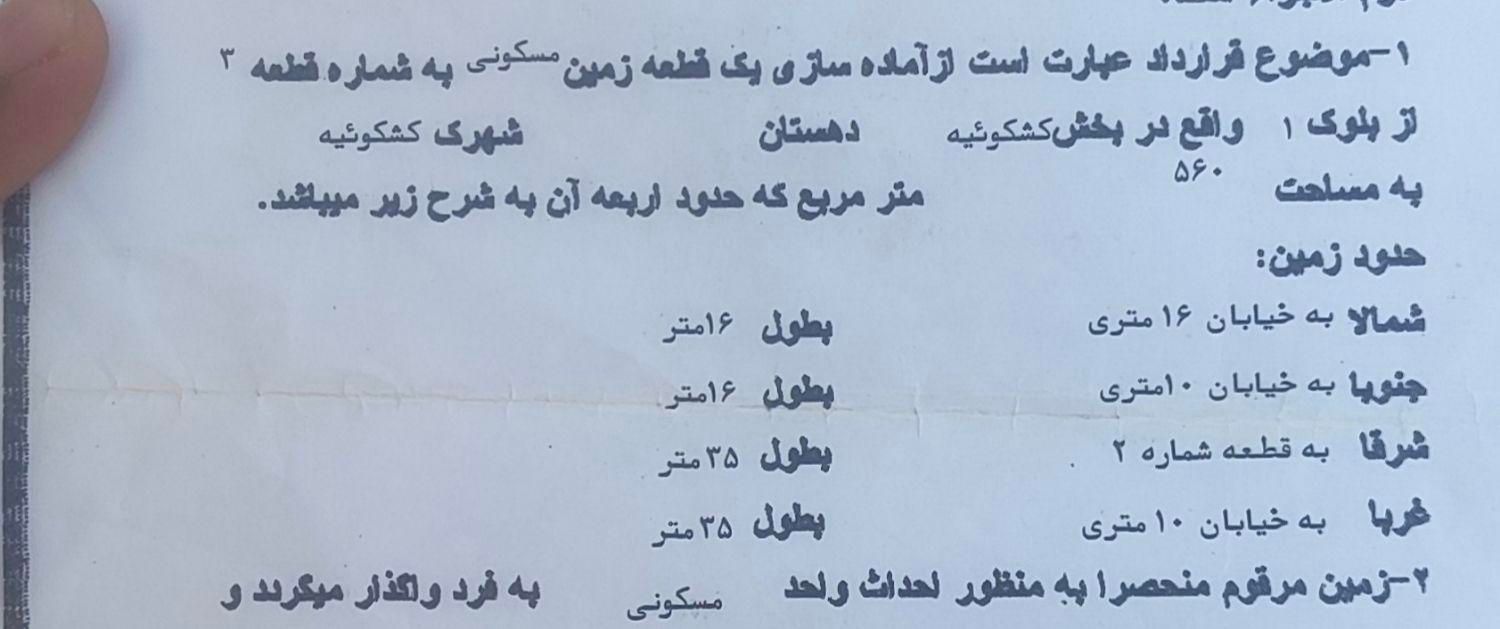 ۱-موضوع قرارداد عبارت است ازآماده سازی یک قطعه زمین مسکونی به شماره قطعه ۳
از بلوک ۱ واقع در بخش کشکوئیه دهستان شهرک کشکوئیه
به مساحت ۵۶۰ متر مربع که حدود اربعه آن به شرح زیر میباشد.
حدود زمین:
شمالا به خیابان ۱۶ متری بطول ۱۶متر
جنوبا به خیابان ۱۰متری بطول ۱۶متر
شرقا به قطعه شماره ۲ بطول ۳۵متر
غربا به خیابان ۱۰ متری بطول ۳۵متر
۲-زمین مرقوم منحصرا به منظور احداث واحد مسکونی به فرد واگذار میگردد و